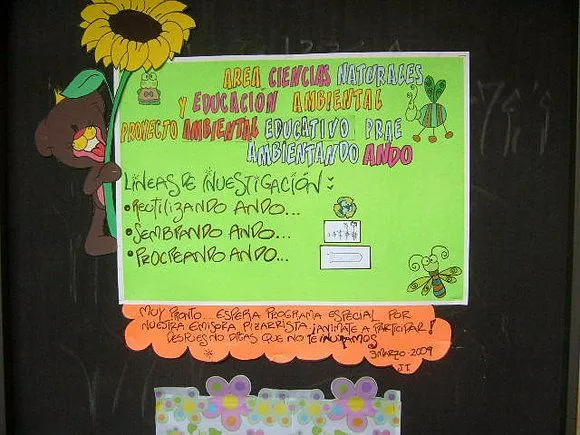 AREA CIENCIAS NATURALES
Y EDUCACIÓN AMBIENTAL
PROYECTO AMBIENTAL EDUCATIVO PRAE
AMBIENTANDO ANDO
LÍNEAS DE INVESTIGACIÓN:
• REUTILIZANDO ANDO...
• SEMBRANDO ANDO...
• PROCREANDO ANDO...
MUY PRONTO... ESPERA PROGRAMA ESPECIAL POR
NUESTRA EMISORA PIZARRISTA ¡ANÍMATE A PARTICIPAR!
DESPUES NO DIGAS QUE NO TE INVITAMOS
3 MARZO - 2009
J.T